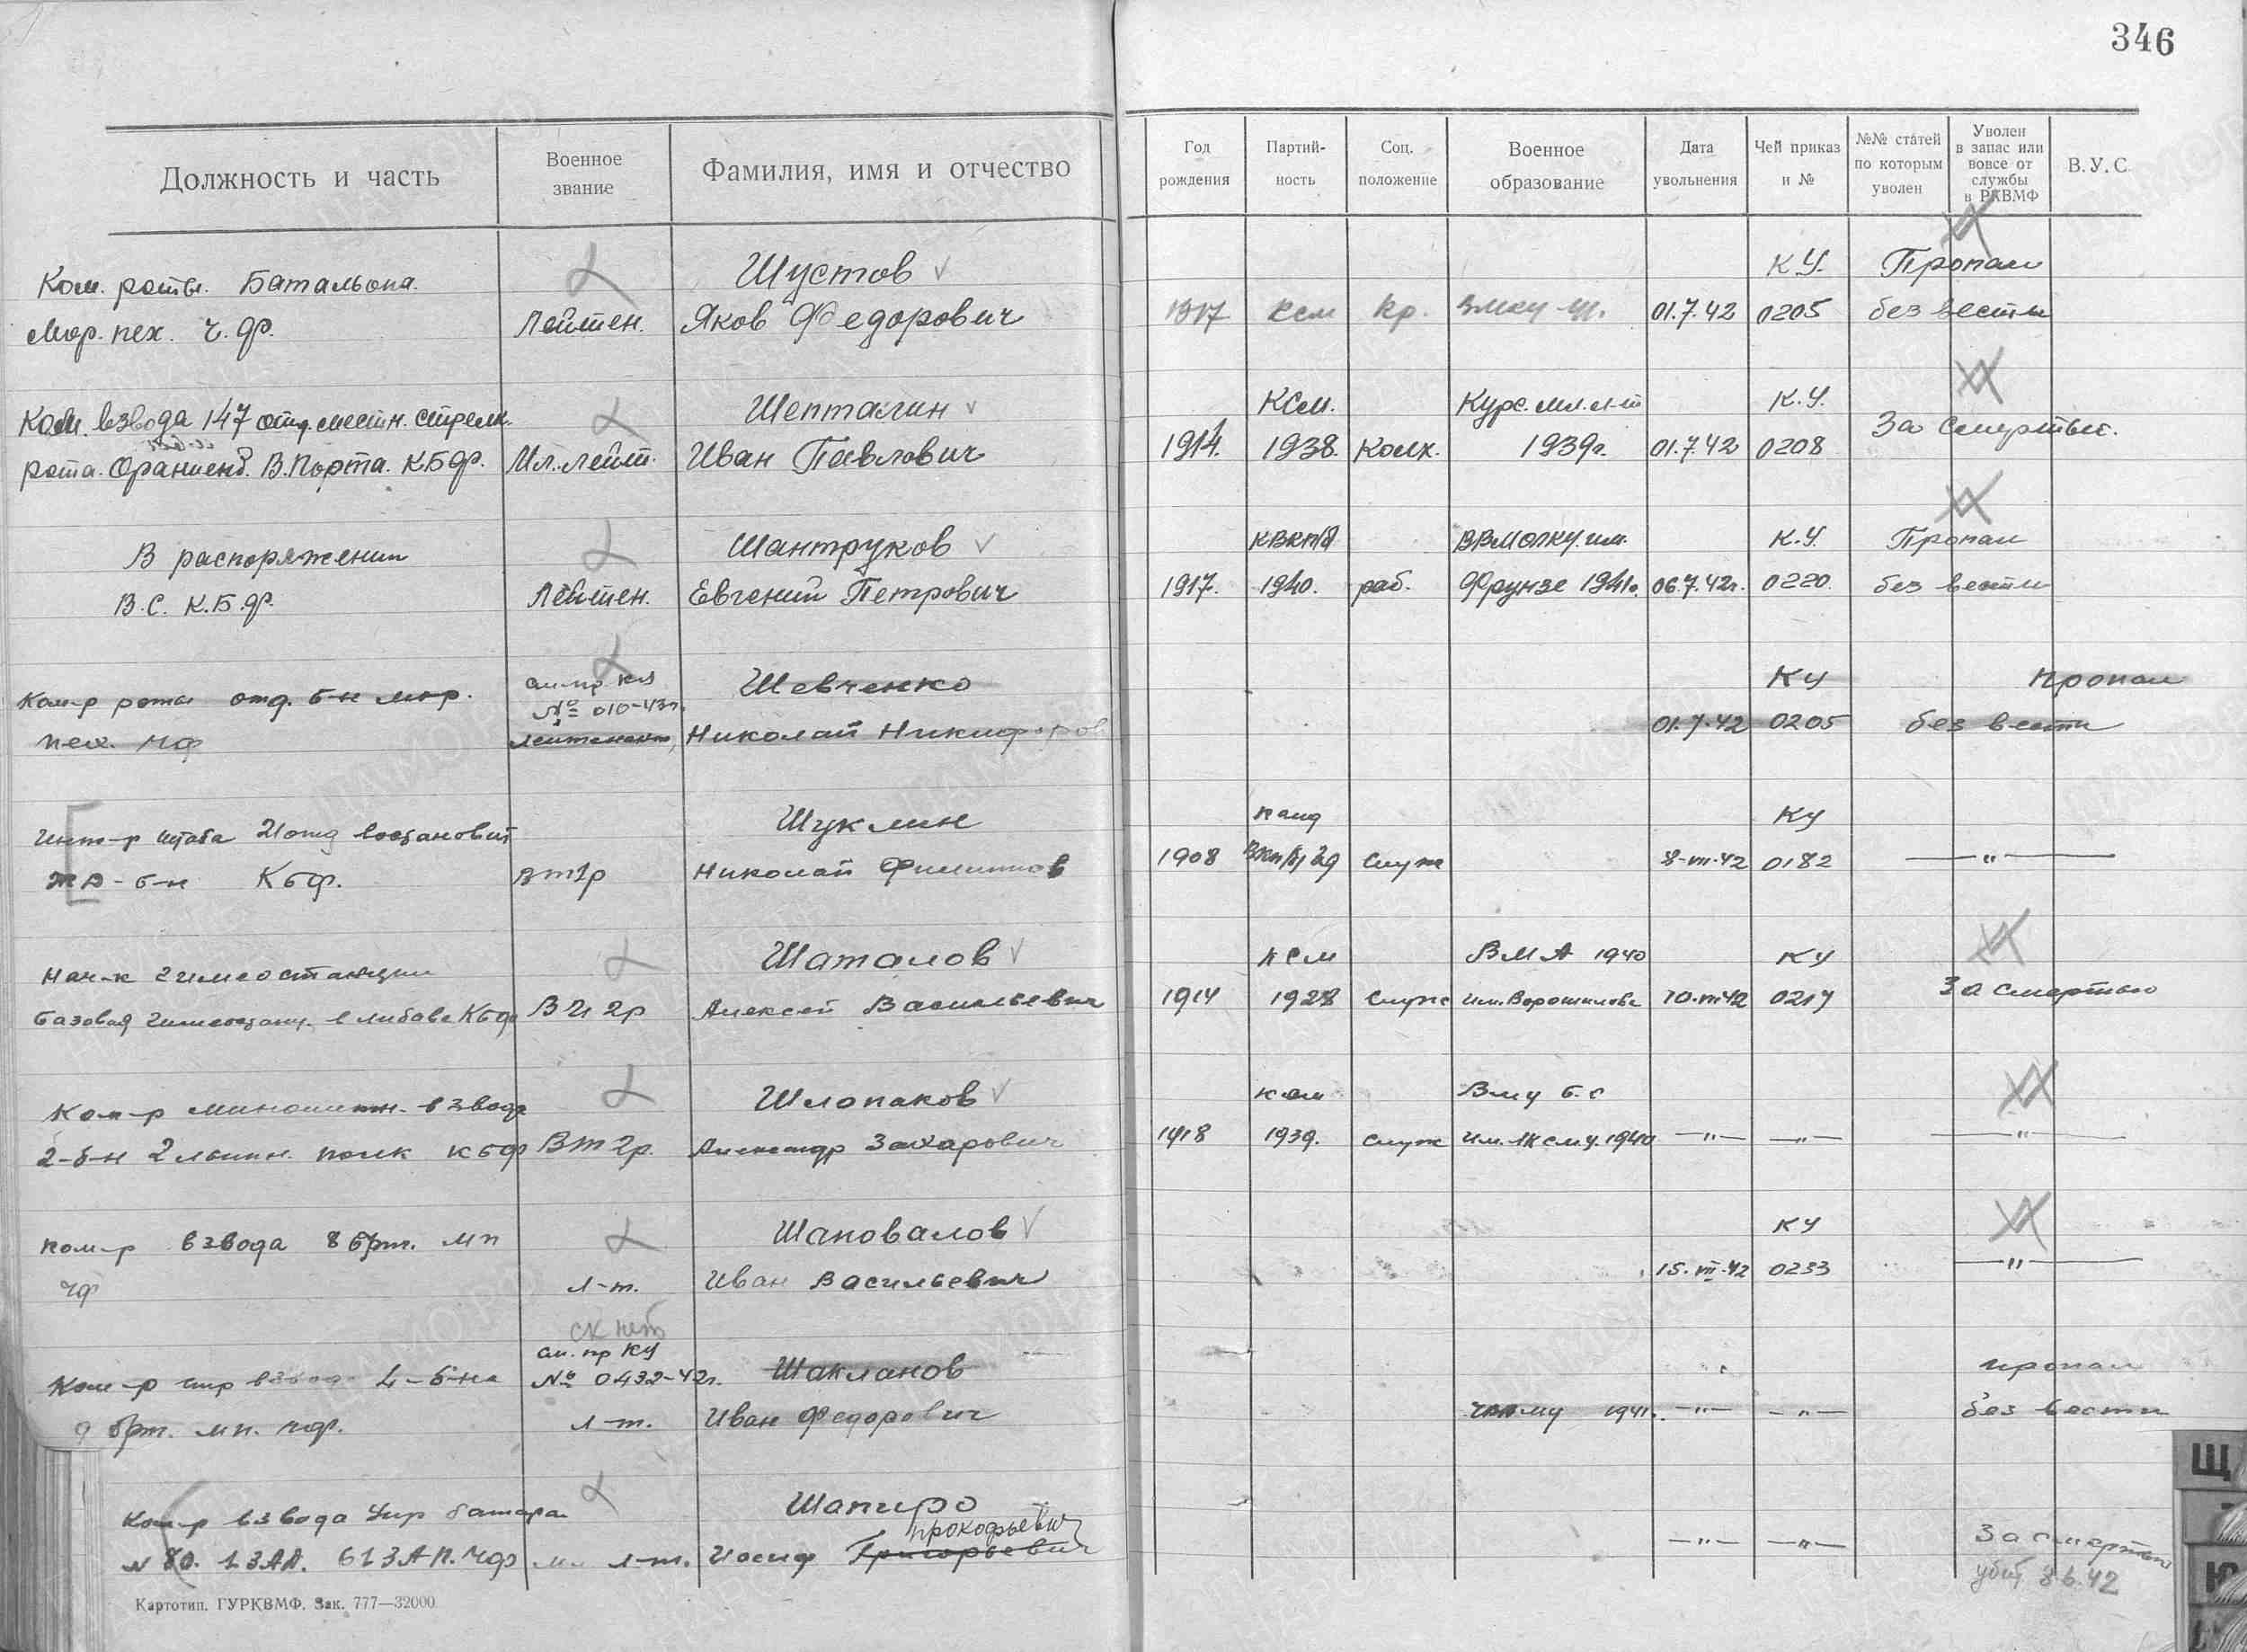 346
Должность и часть
Военное звание
Фамилия, имя и отчество
Год рождения
Партий-ность
Соц. положение
Военное образование
Дата увольнения
Чей приказ и №
№№ статей по которым уволен
Уволен в запас или вовсе от службы в РКВМФ
В.У.С.
Ком. роты. Батальона. Шустов К.У. Пропал
Мор. пех. Ч.Ф. Лейтен. Яков Федорович 1917 ксм Кр. 01.7.42 0205 без вести
Ком. взвода 147 отд. местн. стрелк. Шепталин КСМ. Курс. мл. л-т К.У. За смертью.
рота. Ораниенб. В.Порта. КБФ. Мл. лейт. Иван Павлович 1914. 1938. Колх. 1939г. 01.7.42 0208
В распоряжении Шантруков КВКП/б ВВМОЛКУ. им. К.У. Пропал
В.С. К.Б.Ф. Лейтен. Евгений Петрович 1917. 1940. раб. Фрунзе 1941г. 06.7.42г. 0220. без вести
см. пр КУ
№ 010-43г.
Ком-р роты отд. б-н мор. Шевченко КУ пропал
пех. ЧФ лейтенант, Николай Никифоров 01.7.42 0205 без вести
Инт-р штаба 21 отд востановит Шуклин канд КУ
ЖД - б-н КБФ. Вт1р Николай Филиппов 1908 ВКП/б/ служ 8-VII-42 0182 —"—
Нач-к химеостанции Шаталов КСМ ВМА 1940 КУ За смертью
базовая в Либаве КБФ Алексей Васильевич 1914 1928 служ им. Ворошилова 10-VII-42 0217
Ком-р миномитн. взвода Шлопаков ксм ВМУ б.о
2-б-н 2 лыжн. полк КБФ Вт 2р. Александр Захарович 1918 1939. служ 1940 —"— —"— —"—
Ком-р взвода 8 брт. мп Шаповалов КУ
ЧФ л-т. Иван Васильевич 15.VII.42 0233 —"—
СК нет
см. пр КУ
Ком-р 4-б-на № 0432-42г. Шакланов пропал
9 брт. мп. ЧФ. л-т. Иван Федорович 1941г. —"— —"— без вести
Ком-р взвода Упр батареи Шапиро
Прокофьевич
№ 80. 1 ЗАД. 61 ЗАП. ЧФ мл л-т. Иосиф Григорьевич —"— —"— За смертью
убит 8.6.42
Картотип. ГУРКВМФ. Зак. 777—32000
Щ
Ю